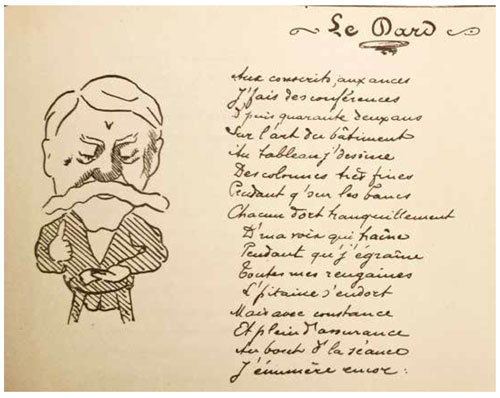 Le Dard
Aux conscrits, aux ances
J'fais des conférences
D'puis quarante deux ans
Sur l'art du bâtiment
Au tableau j'dessine
Des colonnes très fines
Pendant q'sur les bancs
Chacun dort tranquillement
D'ma voix qui traîne
Pendant qu'j'égraine
Toutes mes rengaines
L'pitaine s'endort
Mais avec constance
Et plein d'assurance
Au bout d'la séance
J'énumère encor :